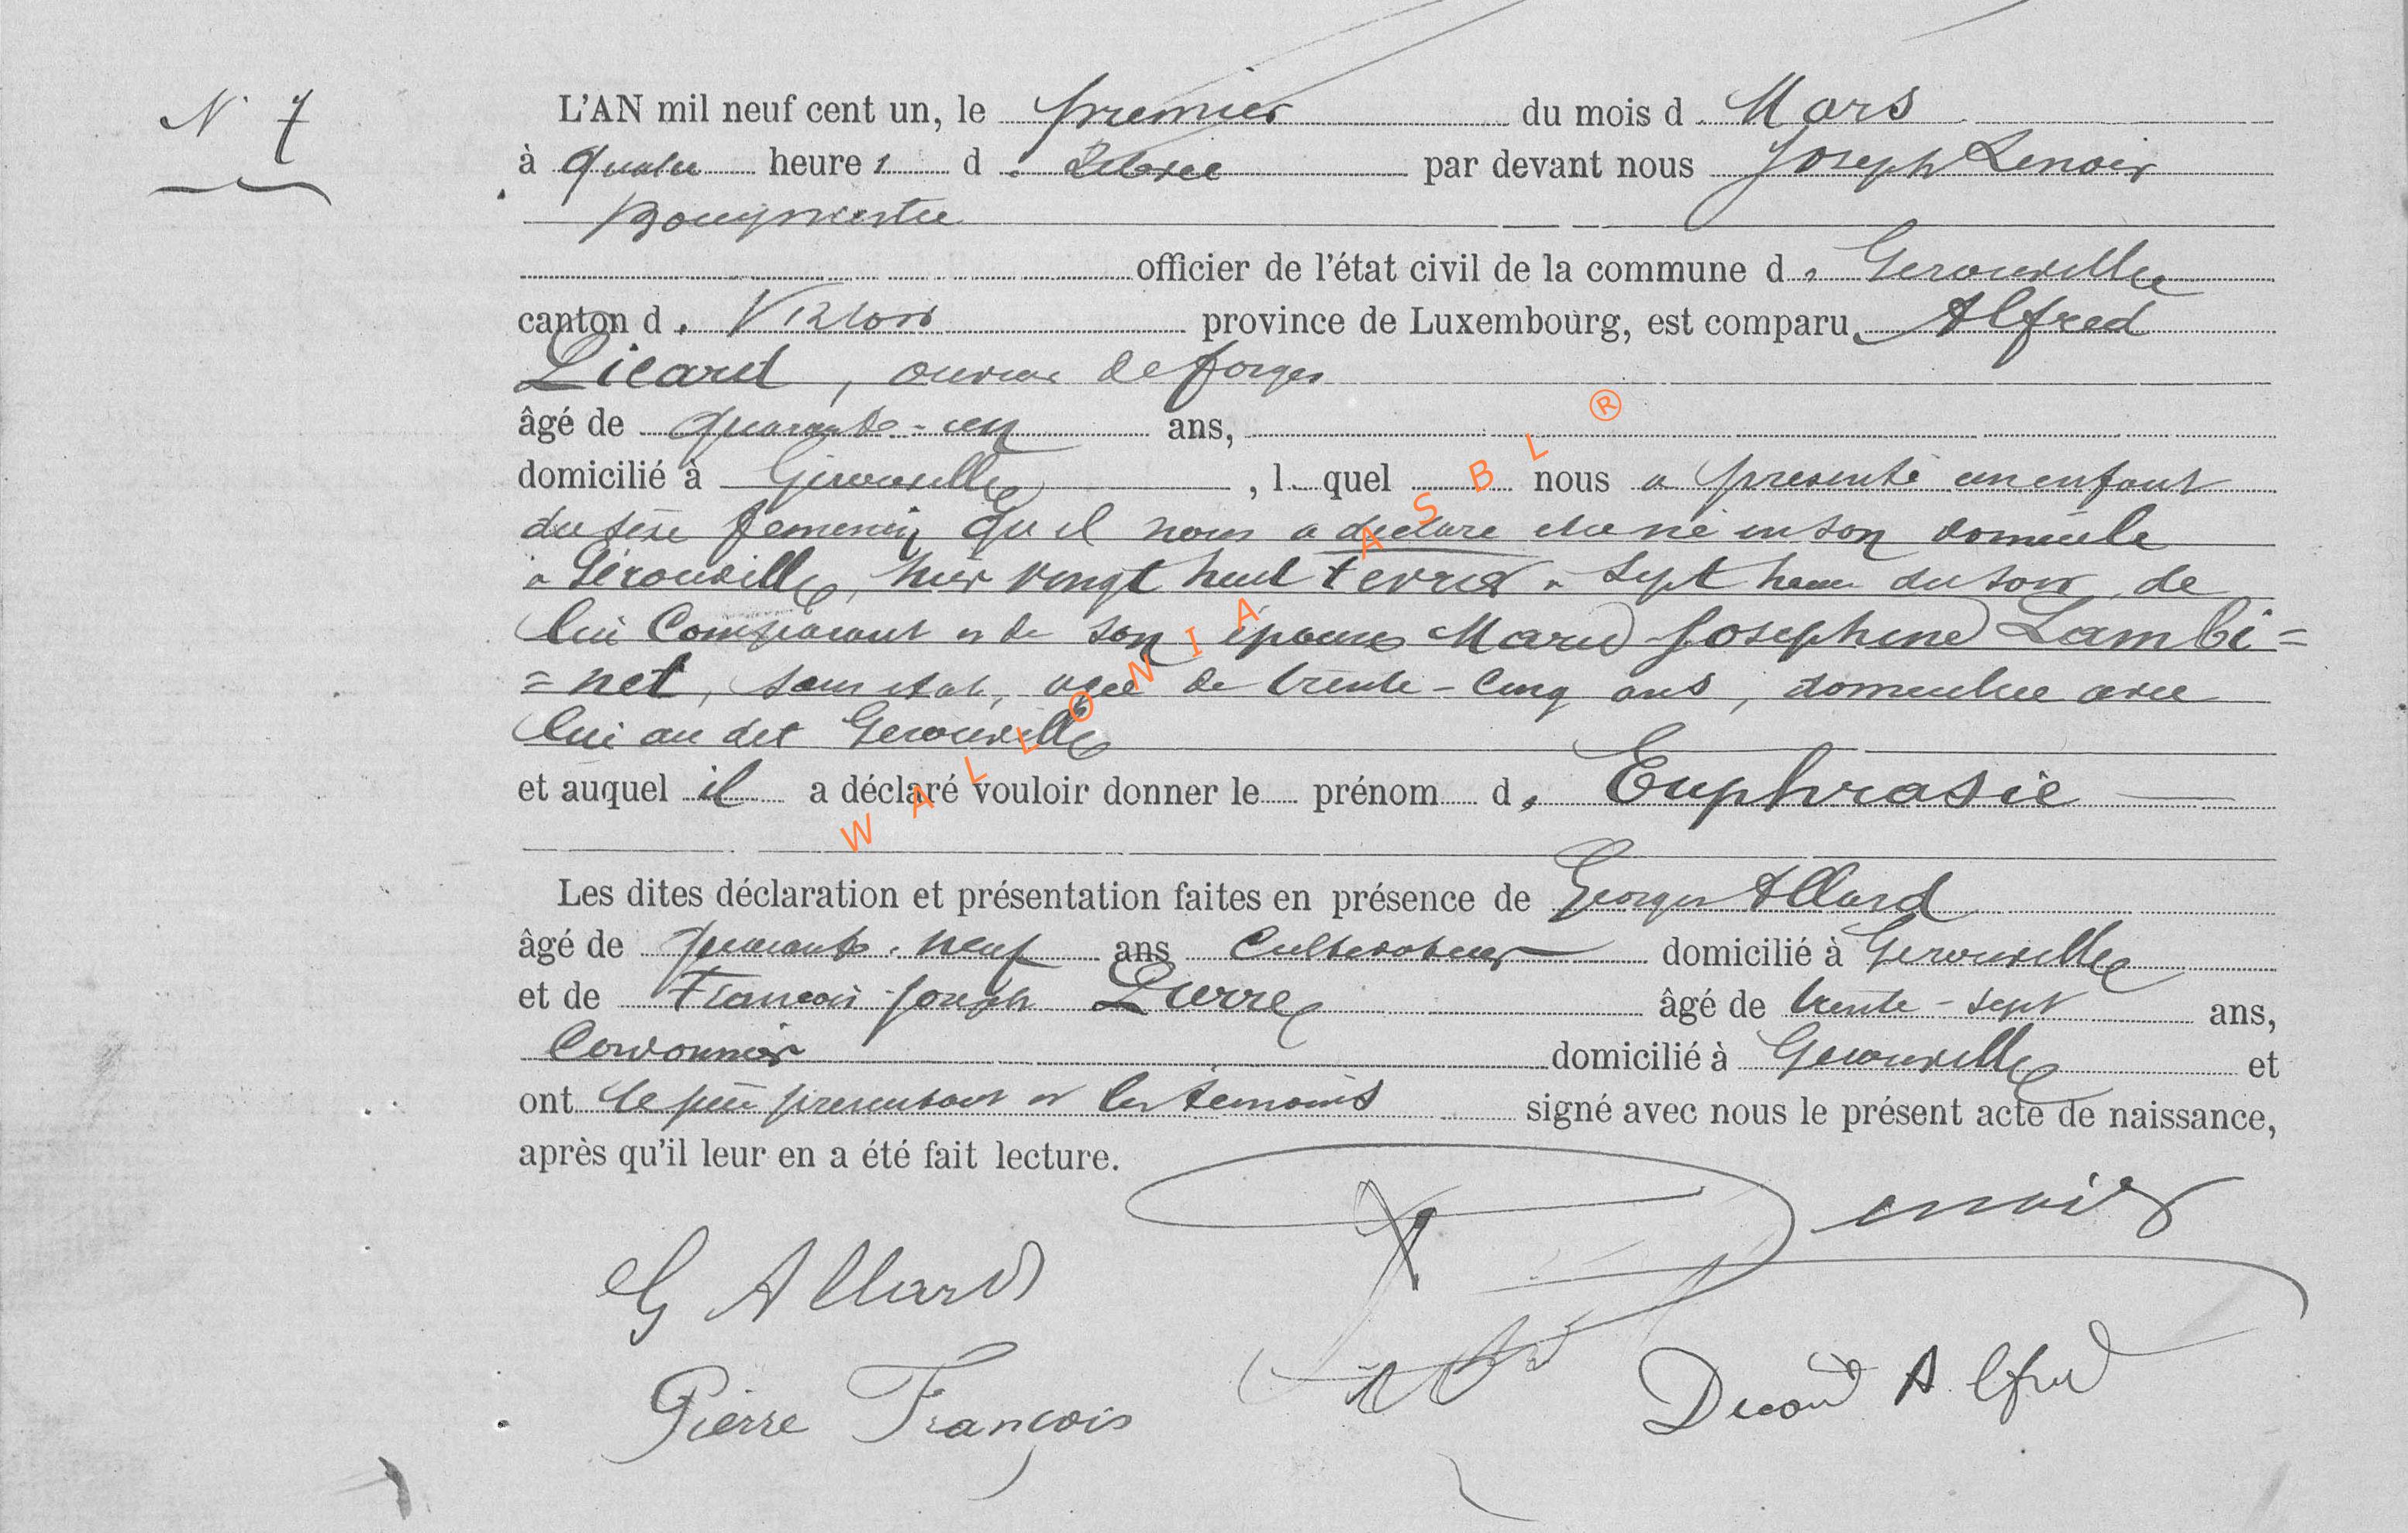 N° 7
L'AN mil neuf cent un, le premier du mois d Mars
à quatre heure s d e relevée par devant nous Joseph Lenoir
Bourgmestre
officier de l'état civil de la commune d e Gerouville
canton d e Virton province de Luxembourg, est comparu Alfred
Dicard, ouvrier de forges
âgé de quarante-un ans,
domicilié à Gerouville, l quel nous a présenté un enfant
du sexe feminin qu'il nous a declaré etre né en son domicile
a Gérouville, hier vingt huit fevrier a sept heures du soir, de
lui Comparant et de son épouse Marie Josephine Lambi=
=net, sans etat, agée de trente-cinq ans, domiciliée avec
lui au dit Gerouville
et auquel il a déclaré vouloir donner le prénom d e Euphrasie
Les dites déclaration et présentation faites en présence de Georges Allard
âgé de quarante-neuf ans Cultivateur domicilié à Gerouville
et de François-Joseph Pierre âgé de trente-sept ans,
Cordonnier domicilié à Gerouville et
ont le père presentant et les témoins signé avec nous le présent acte de naissance,
après qu'il leur en a été fait lecture.
Lenoir
G Allard
Pierre François
Dicard Alfred
WALLONIA ASBL ®